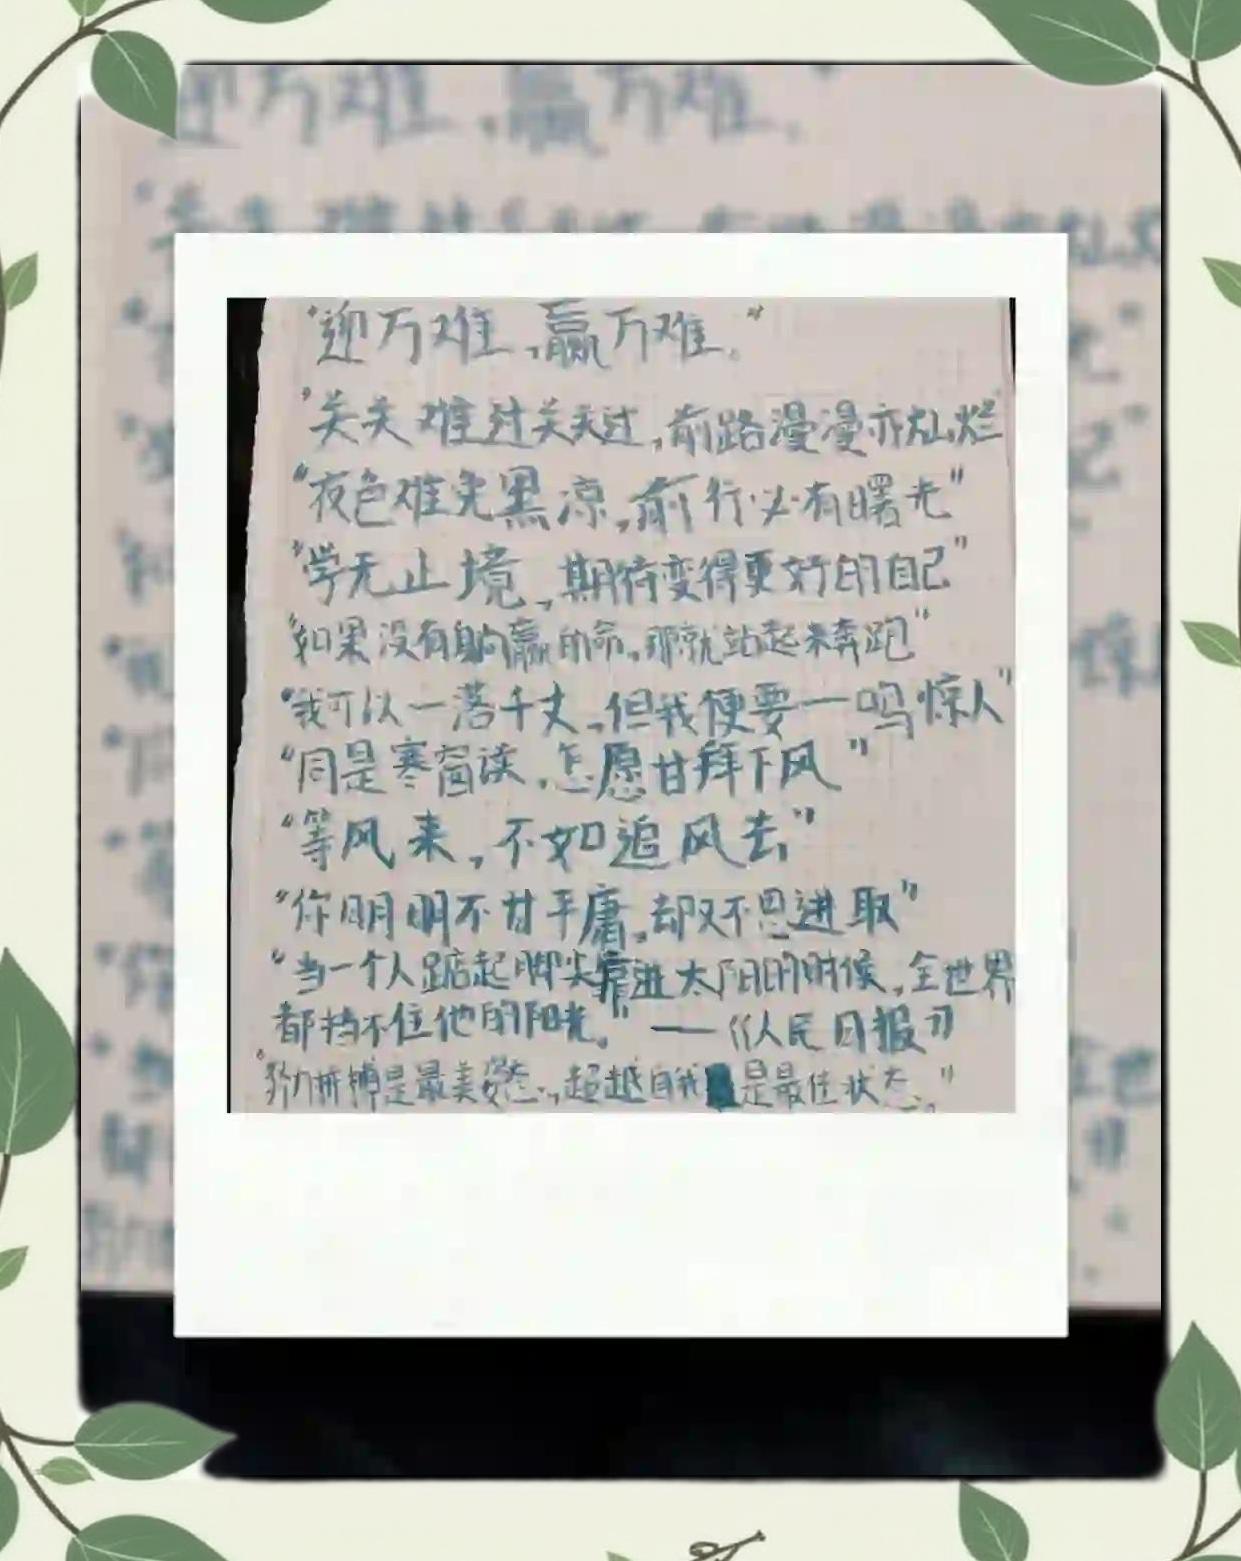 “迎万难,赢万难。”
“关关难过关关过,前路漫漫亦灿烂
“夜色难免黑凉,前行必有曙光”
“学无止境,期待变得更好的自己”
“如果没有躺赢的命,那就站起来奔跑”
“我可以一落千丈,但我便要一鸣惊人”
“同是寒窗读,怎愿甘拜下风”
“等风来,不如追风去”
“你明明不甘平庸,却又不思进取”
“当一个人踮起脚尖靠进太阳的时候,全世界
都挡不住他的阳光。”——《人民日报》
“努力拼搏是最美姿态,超越自我是最佳状态。”